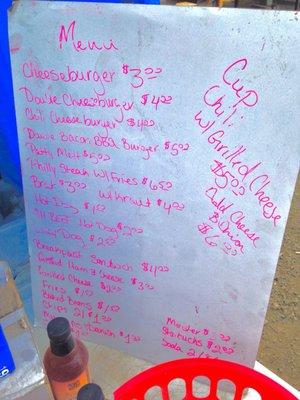 Menu
Cheeseburger $3.00
Dowle Cheeseburger $4.00
Chili Cheeseburger $4.00
Dowle Bacon BBQ Burger $5.00
Patty Melt $5.00
Philly Steak W/ Fries $6.50
Brat $3.00 w/ kraut $4.00
Hot Dog $1.00
All Beef Hot Dog $2.00
Dog $2.00
Breakfast Sandwich $4.00
Grilled Ham & Cheese $3.00
Grilled Cheese $2.00
Fries $1.00
Baked Beans $1.00
Chips $1.00
Cup
Chili
W/ Grilled Cheese
$5.00
Add Cheese
& Onion
$6.00
Monster $
Starbucks $2.00
Soda 2/